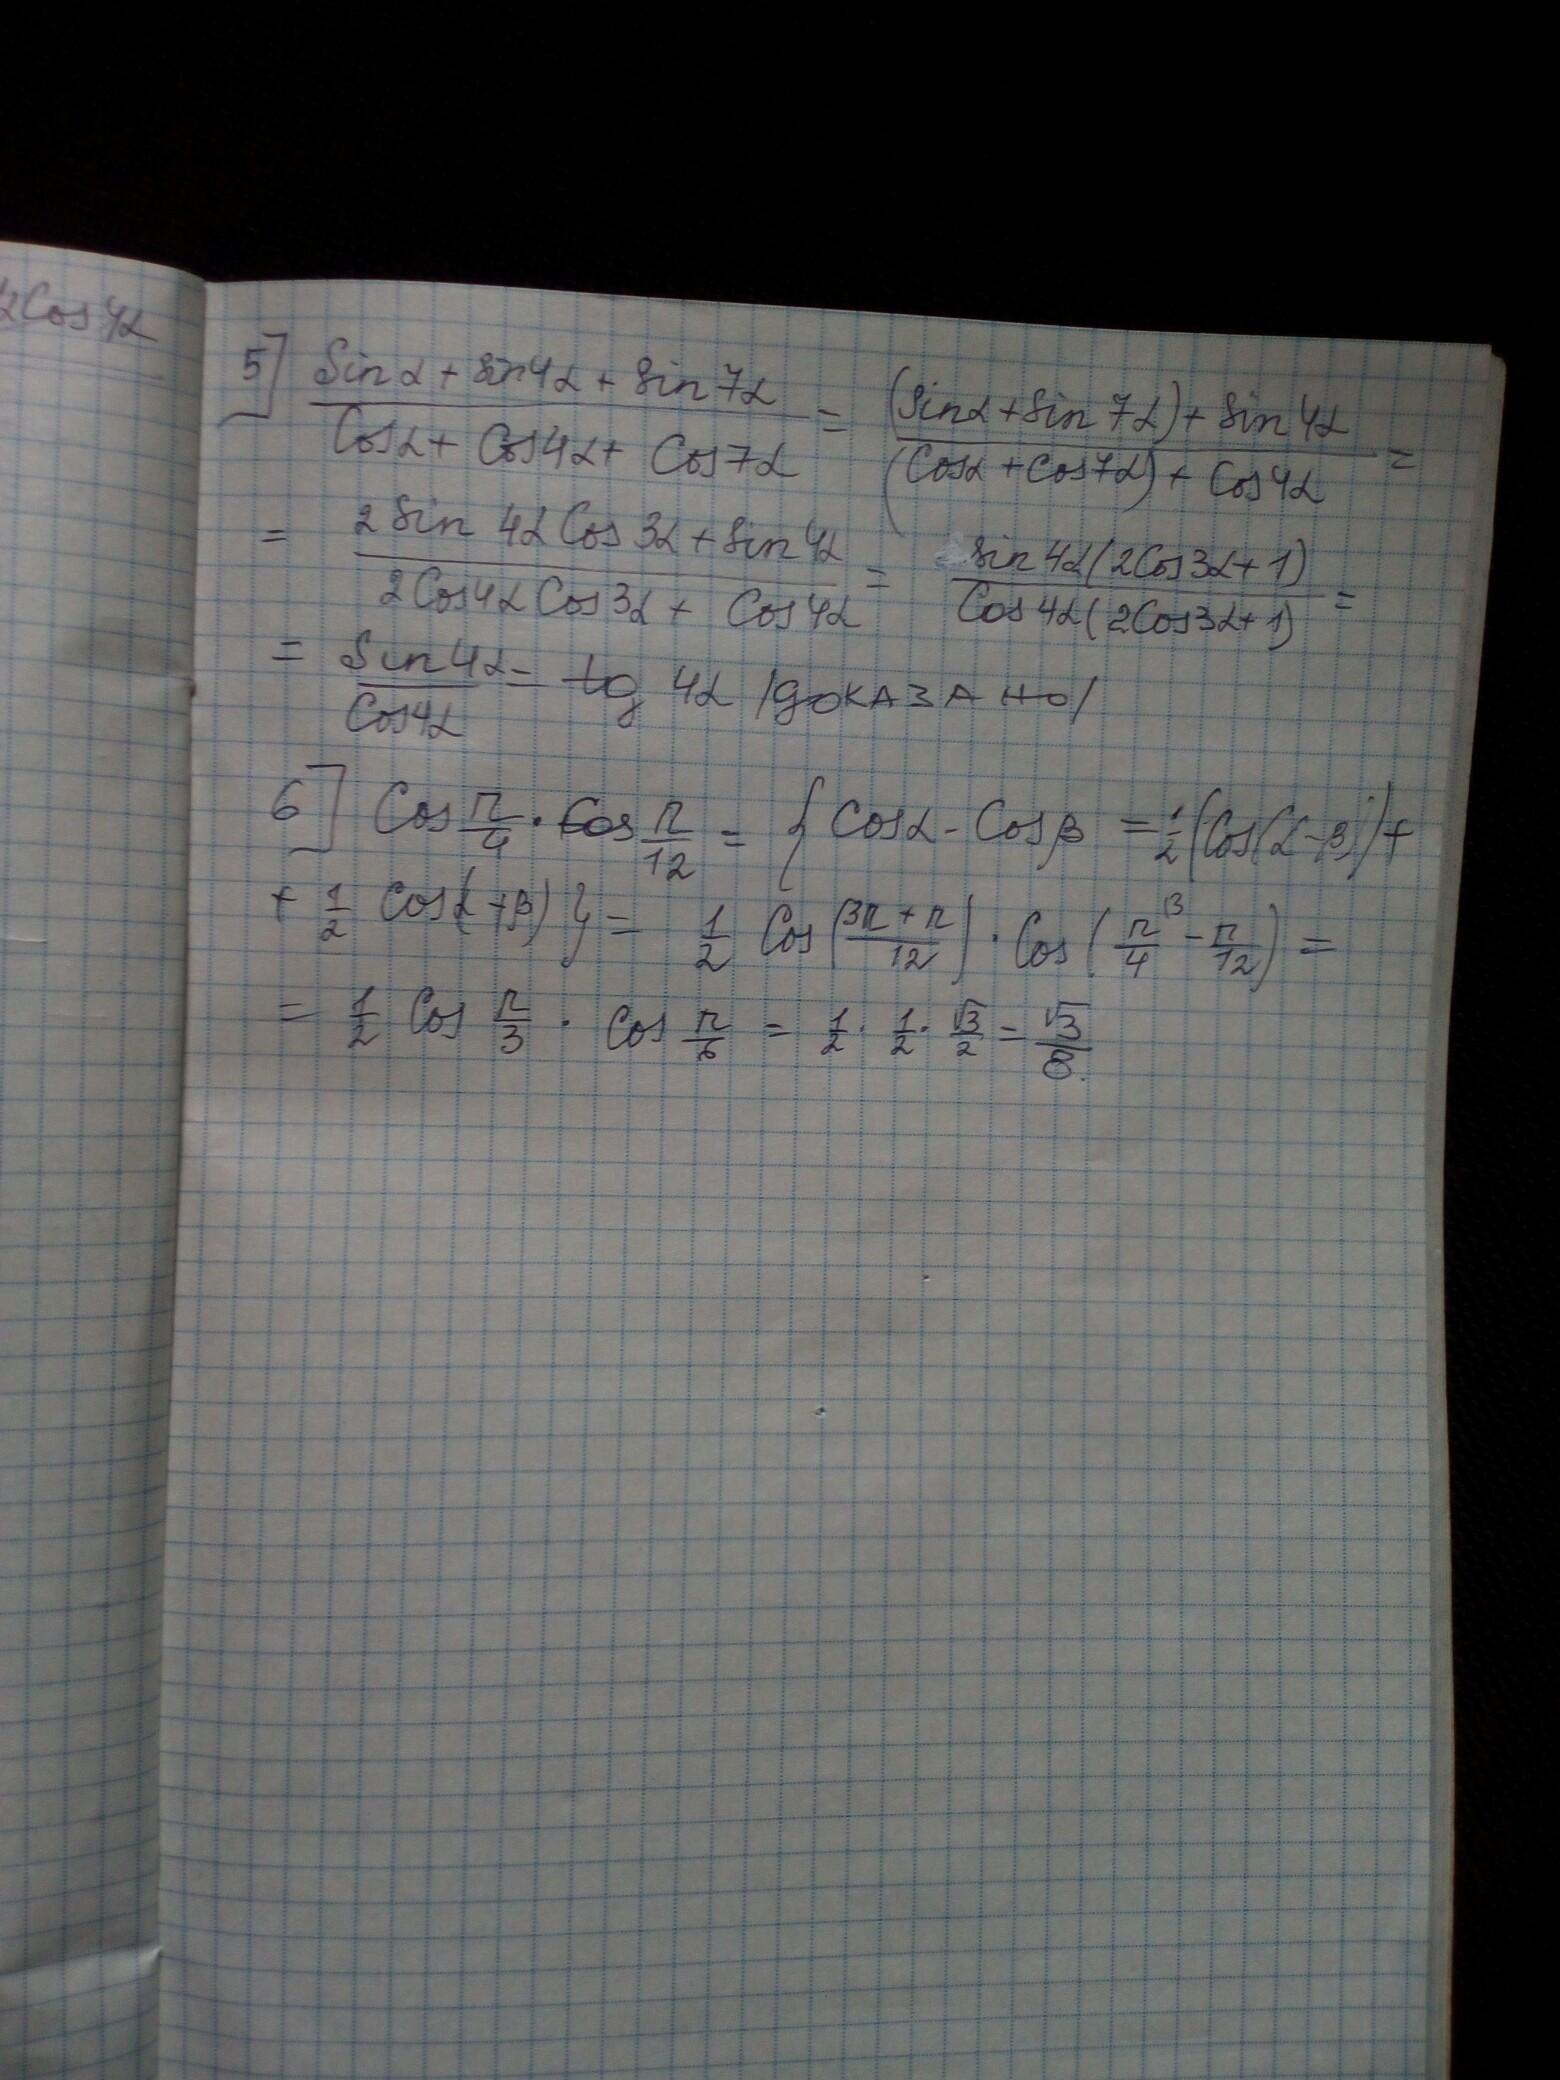 2Cos4α
5] (Sinα + sin4α + sin7α)/(Cosα + Cos4α + Cos7α) = ((Sinα + Sin7α) + Sin4α)/((Cosα + Cos7α) + Cos4α) =
= (2Sin 4α Cos3α + Sin4α)/(2Cos4α Cos3α + Cos4α) = (Sin4α(2Cos3α+1))/(Cos4α(2Cos3α+1)) =
= Sin4α/Cos4α = tg 4α /доказано/
6] Cos π/4 · Cos π/12 = { Cosα - Cosβ = 1/2(Cos(α-β)) +
+ 1/2 Cos(α+β) } = 1/2 Cos((3π+π)/12) · Cos(π/4 ³ - π/12) =
= 1/2 Cos π/3 · Cos π/6 = 1/2 · 1/2 · √3/2 = √3/8.